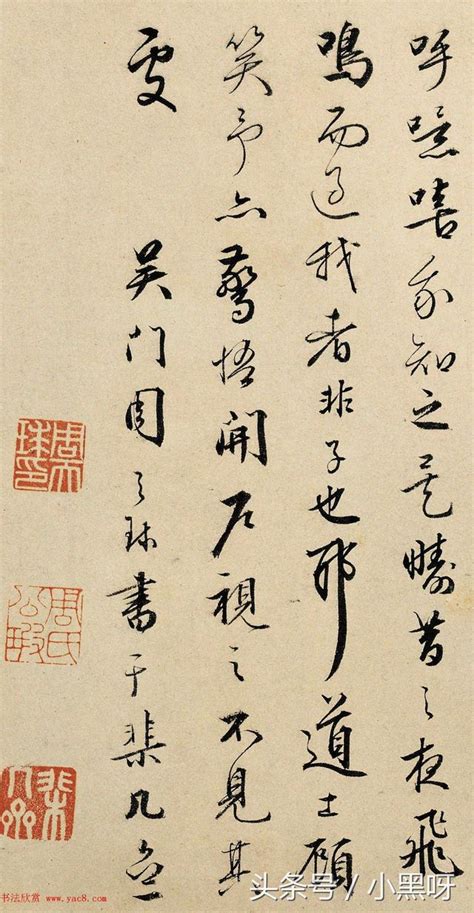 呼噫嘻我知之矣疇昔之夜飛
鳴而過我者非子也耶道士顧
笑予亦驚悟開戶視之不見其
處 吳門周天球書于棐几
周天球印
周氏公瑕
头条号 / 小黑呀
书法欣赏 www.yac8.com